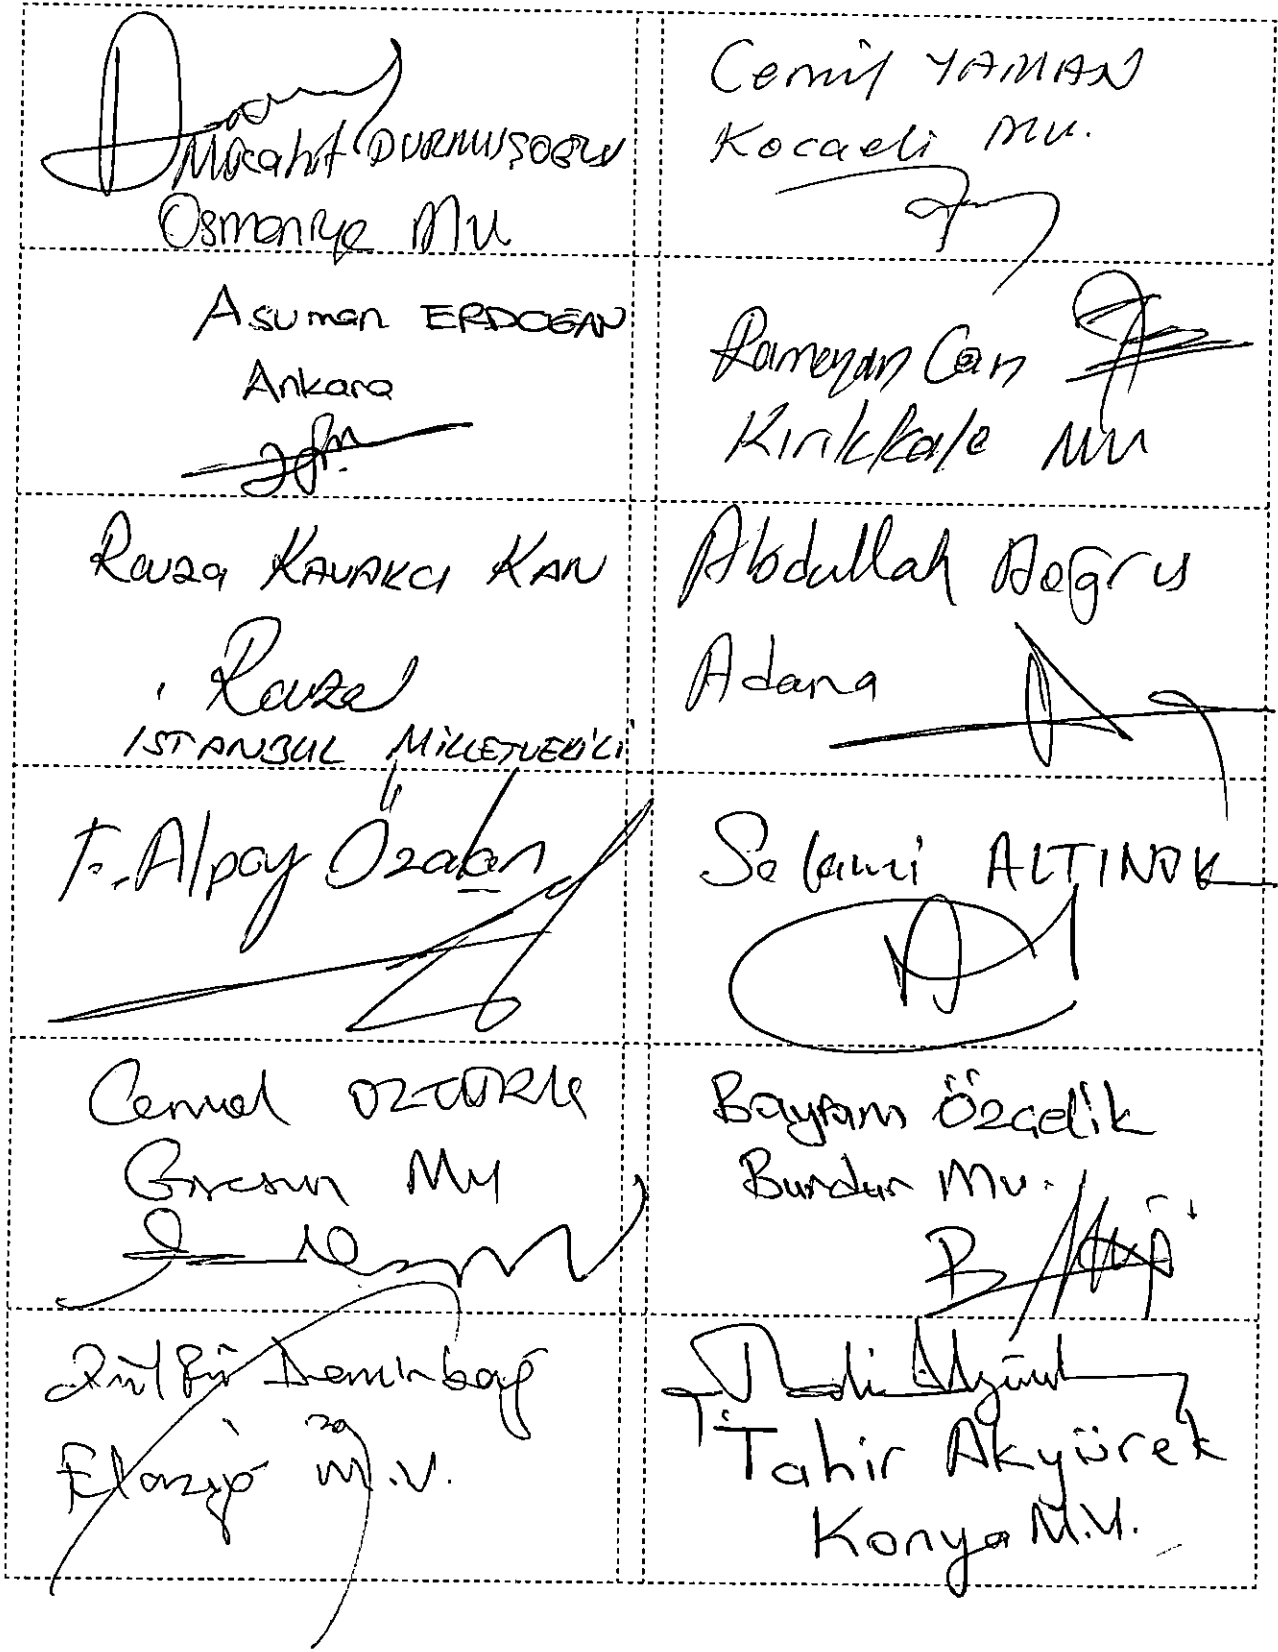 Mücahit DURMUŞOĞLU
Osmaniye Mv
Cemil YAMAN
Kocaeli Mv.
Asuman ERDOĞAN
Ankara
Ramazan Can
Kırıkkale Mv
Ravza KAVAKCI KAN
Ravza
İSTANBUL MİLLETVEKİLİ
Abdullah Doğru
Adana
F. Alpay Özalan
Selami ALTINOK
Cemal ÖZTÜRK
Giresun Mv
Bayram Özçelik
Burdur Mv.
Zülfü Demirbağ
Elazığ M.V.
Tahir Akyürek
Konya M.V.